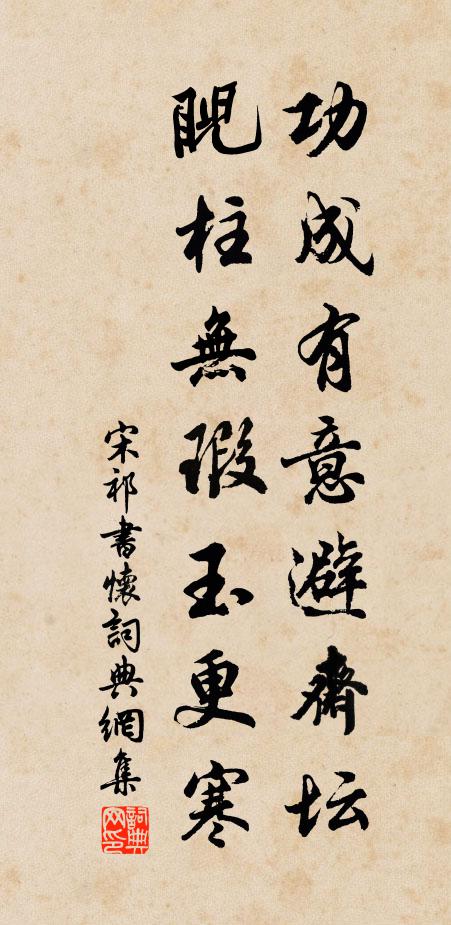 功成有意避齊坛
睨柱無瑕玉更寒
宋祁書懷詞典網集
詞典网印